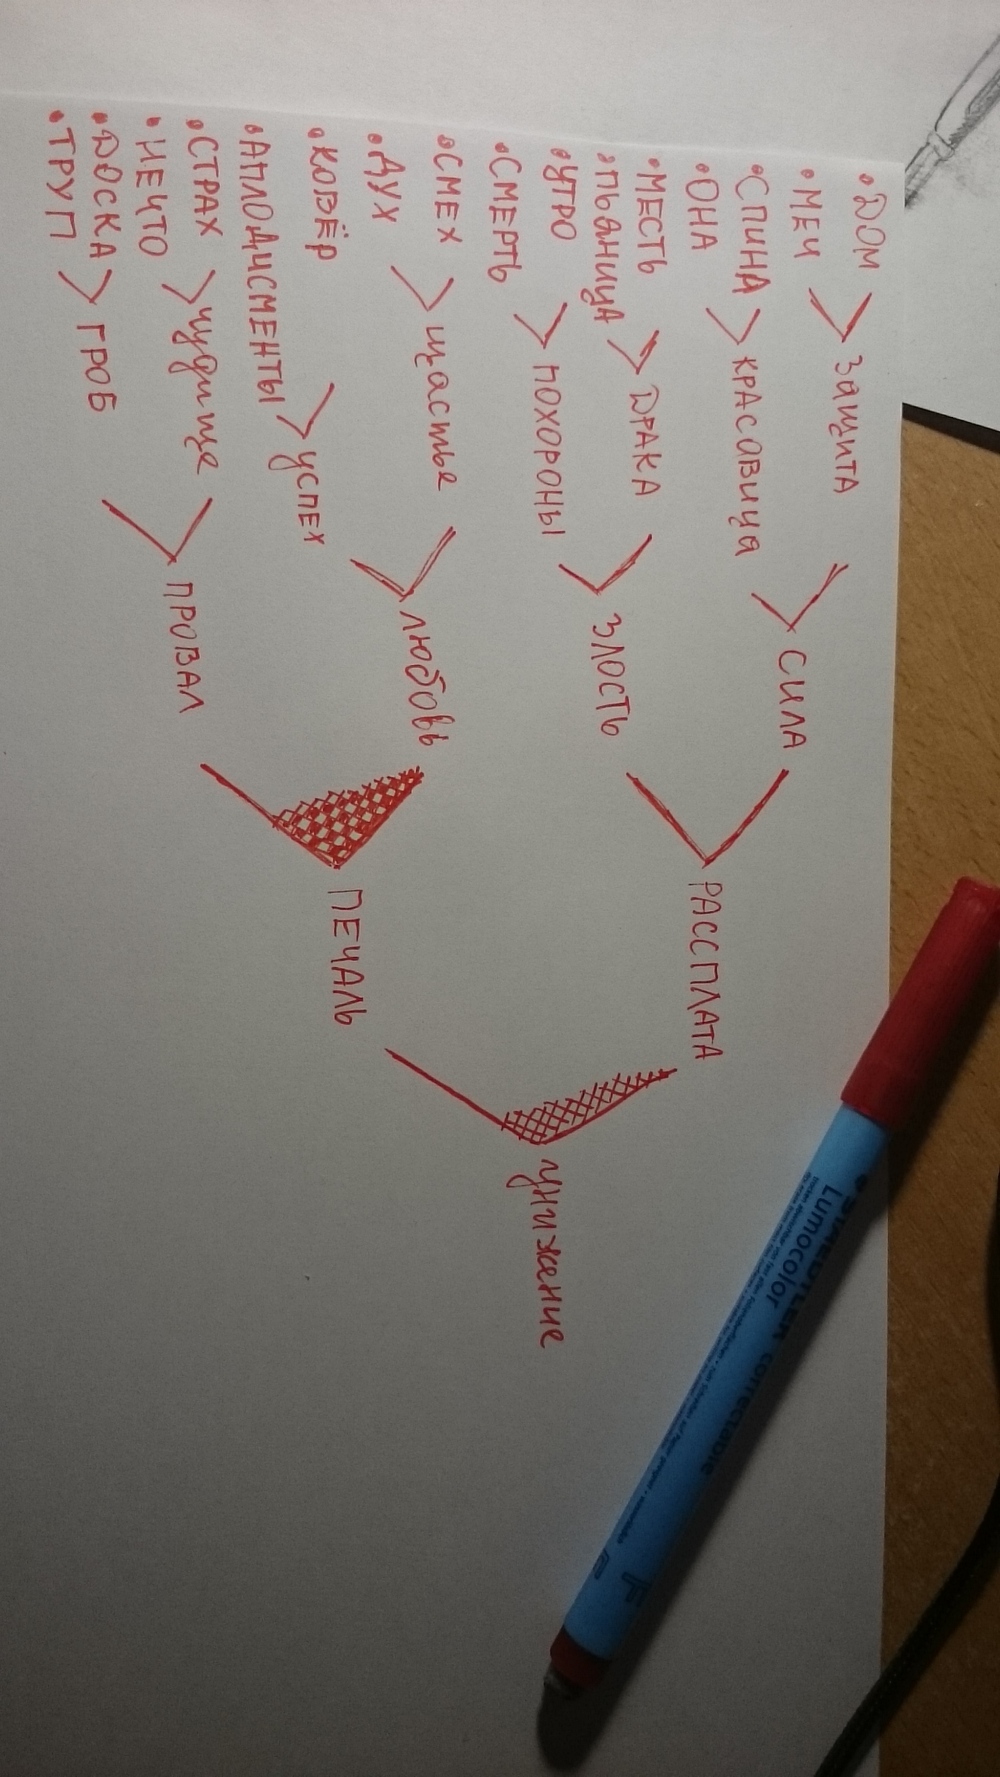 • ДОМ
• МЕЧ
• СПИНА
• ОНА
• МЕСТЬ
• ПЬЯНИЦА
• УТРО
• СМЕРТЬ
• СМЕХ
• ДУХ
• КОВЁР
• АПЛОДИСМЕНТЫ
• СТРАХ
• НЕЧТО
• ДОСКА
• ТРУП
ЗАЩИТА
КРАСАВИЦА
ДРАКА
ПОХОРОНЫ
щастье
УСПЕХ
чудище
ГРОБ
СИЛА
ЗЛОСТЬ
любовь
ПРОВАЛ
РАССПЛАТА
ПЕЧАЛЬ
унижение
STAEDTLER correctable
Lumocolor
F